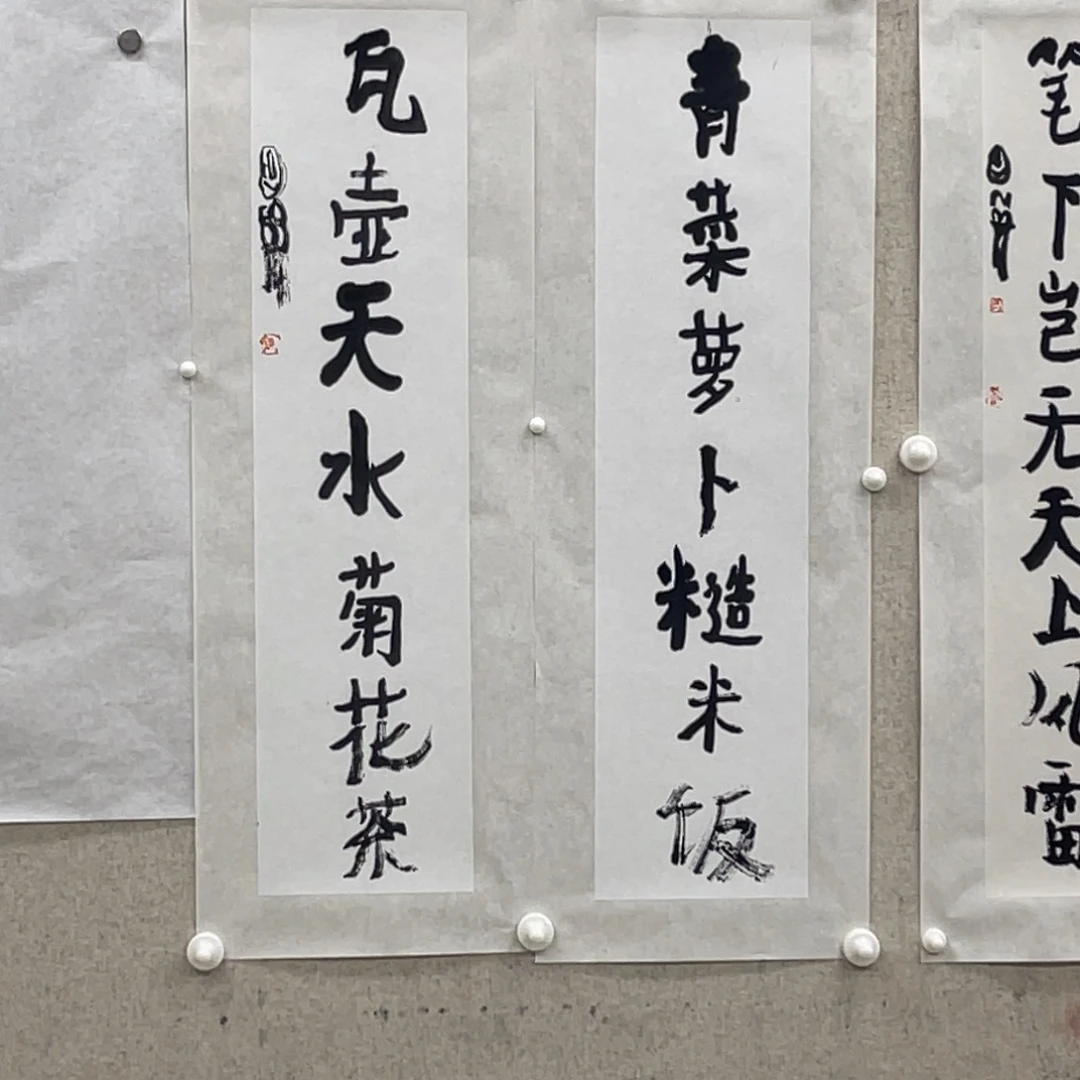 笔下岂无天上风雷
青菜萝卜糙米饭
瓦壶天水菊花茶